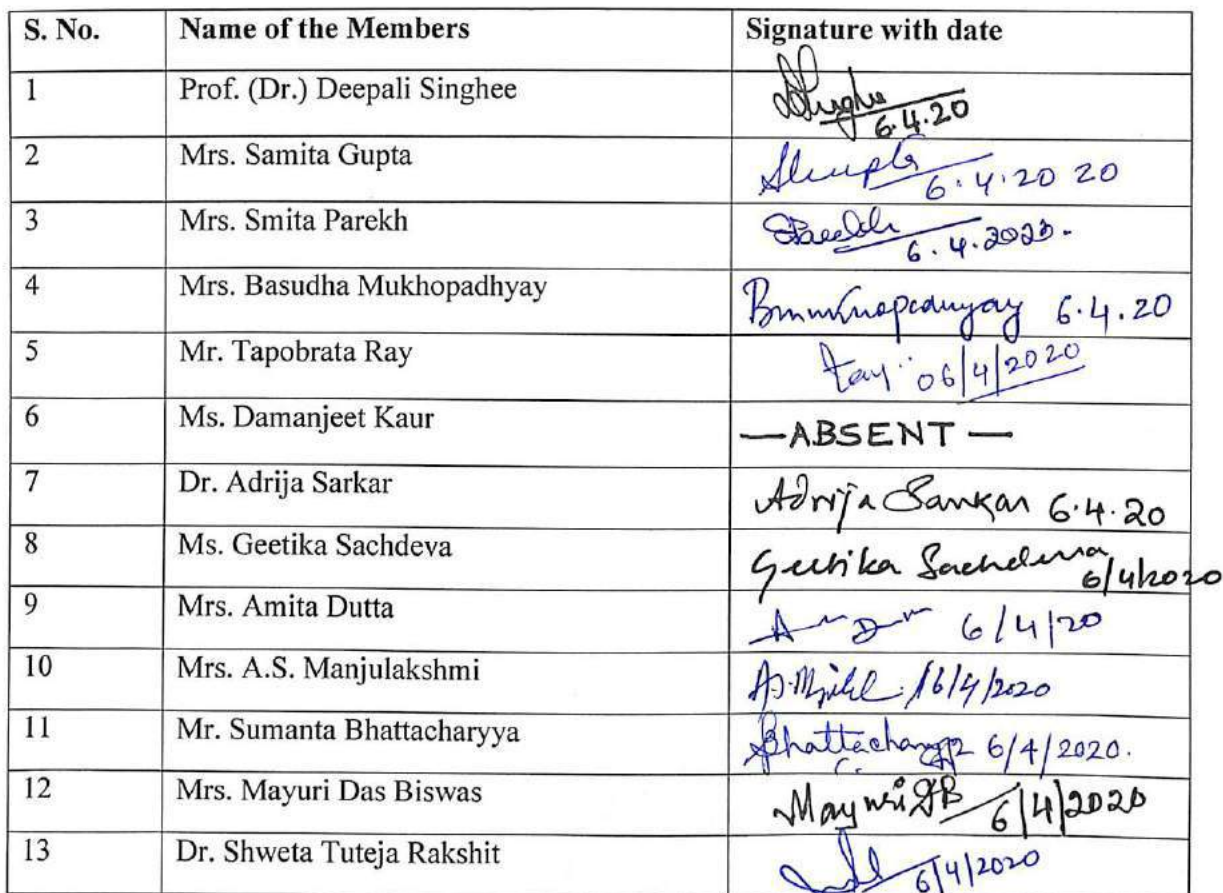 S. No. Name of the Members Signature with date
1 Prof. (Dr.) Deepali Singhee
6.4.20
2 Mrs. Samita Gupta
6.4.20 20
3 Mrs. Smita Parekh
6.4.2020.
4 Mrs. Basudha Mukhopadhyay 6.4.20
5 Mr. Tapobrata Ray 06/4/2020
6 Ms. Damanjeet Kaur —ABSENT—
7 Dr. Adrija Sarkar Adrija Sarkar 6.4.20
8 Ms. Geetika Sachdeva Geetika Sachdeva 6/4/2020
9 Mrs. Amita Dutta 6/4/20
10 Mrs. A.S. Manjulakshmi 6/4/2020
11 Mr. Sumanta Bhattacharyya SBhattacharyya 6/4/2020.
12 Mrs. Mayuri Das Biswas Mayuri DB 6/4/2020
13 Dr. Shweta Tuteja Rakshit 6/4/2020